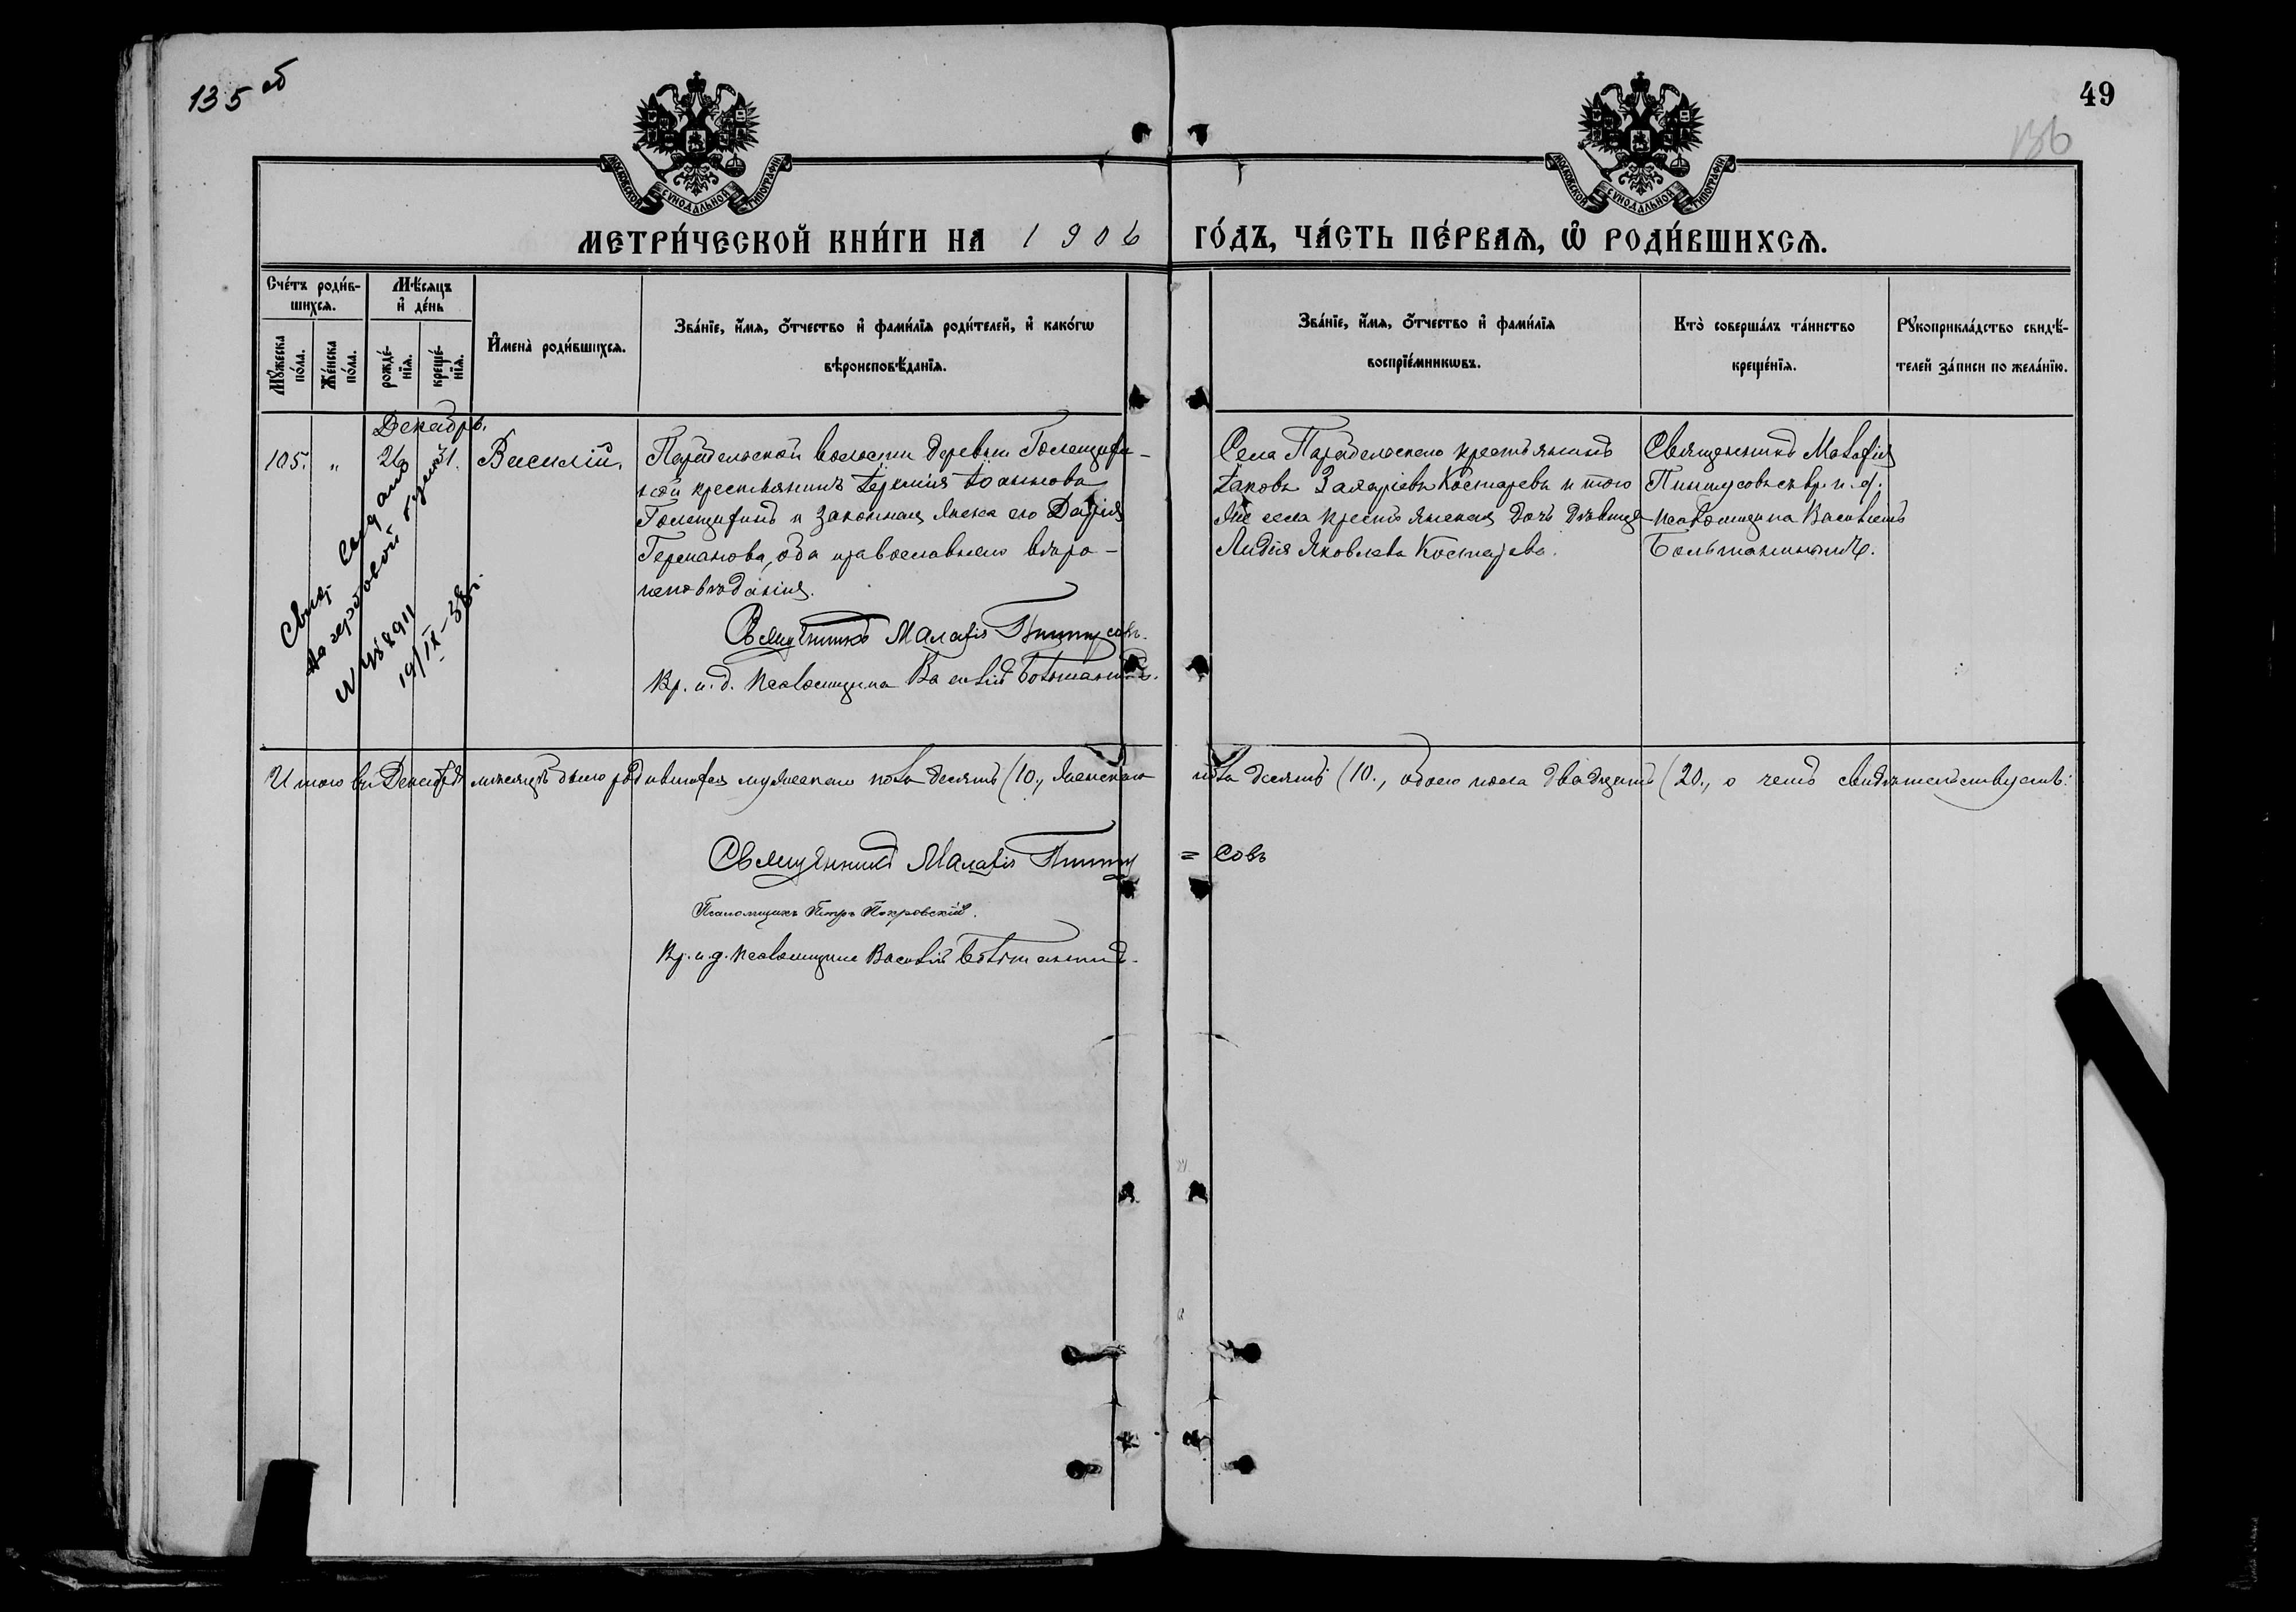 135 об
49
136
МОСКОВСКОЙ СѴНОДАЛЬНОЙ ТИПОГРАФІИ
МОСКОВСКОЙ СѴНОДАЛЬНОЙ ТИПОГРАФІИ
МЕТРИ́ЧЕСКОЙ КНИ́ГИ НА 1906 ГО́ДЪ, ЧА́СТЬ ПЕ́РВАѦ, Ѽ РОДИ́ВШИХСѦ.
Сче́тъ роди́в-
шихсѧ.
Мꙋ́жеска
по́ла.
Же́нска
по́ла.
Мѣ́сѧцъ
и҆ де́нь
рожде́-
нїѧ.
креще́-
нїѧ.
И҆мена̀ роди́вшихсѧ.
Зва́нїе, и҆́мѧ, ѻ҆́тчество и҆ фами́лїѧ роди́телей, и҆ како́гѡ
вѣроисповѣ́данїѧ.
Зва́нїе, и҆́мѧ, ѻ҆́тчество и҆ фами́лїѧ
воспрїе́мникѡвъ.
Кто̀ соверша́лъ та́инство
креще́нїѧ.
Рꙋкоприкла́дство свидѣ́-
телей за́писи по жела́нїю.
Декабрь.
105. " 26 31. Василій.
Парабельской волости деревни Голещихи-
ной крестьянинъ Іеремія Іоаннова
Голещихинъ и законная жена его Дарія
Германова, оба православнаго вѣро-
исповѣданія.
Священникъ Малафій Пинусовъ.
Вр. и. д. псаломщика Василій Больтанинъ.
Села Парабельскаго крестьянинъ
Іаковъ Захаріевъ Костаревъ и того
же села крестьянская дочь дѣвица
Лидія Яковлева Костарева.
Священникъ Малафій
Пинусовъ съ вр. и. д.
псаломщика Василіемъ
Больтанинымъ.
Свид. выдано
на гербовой бумагѣ
19/IX-38г.
Итого въ Декабрѣ мѣсяцѣ было родившихся мужескаго пола десять (10., женскаго пола десять (10., обоего пола двадцать (20., о чемъ свидѣтельствуемъ:
Священникъ Малафій Пинну = совъ
Псаломщикъ Петръ Покровскій.
Вр. и. д. псаломщика Василій Больтанинъ.